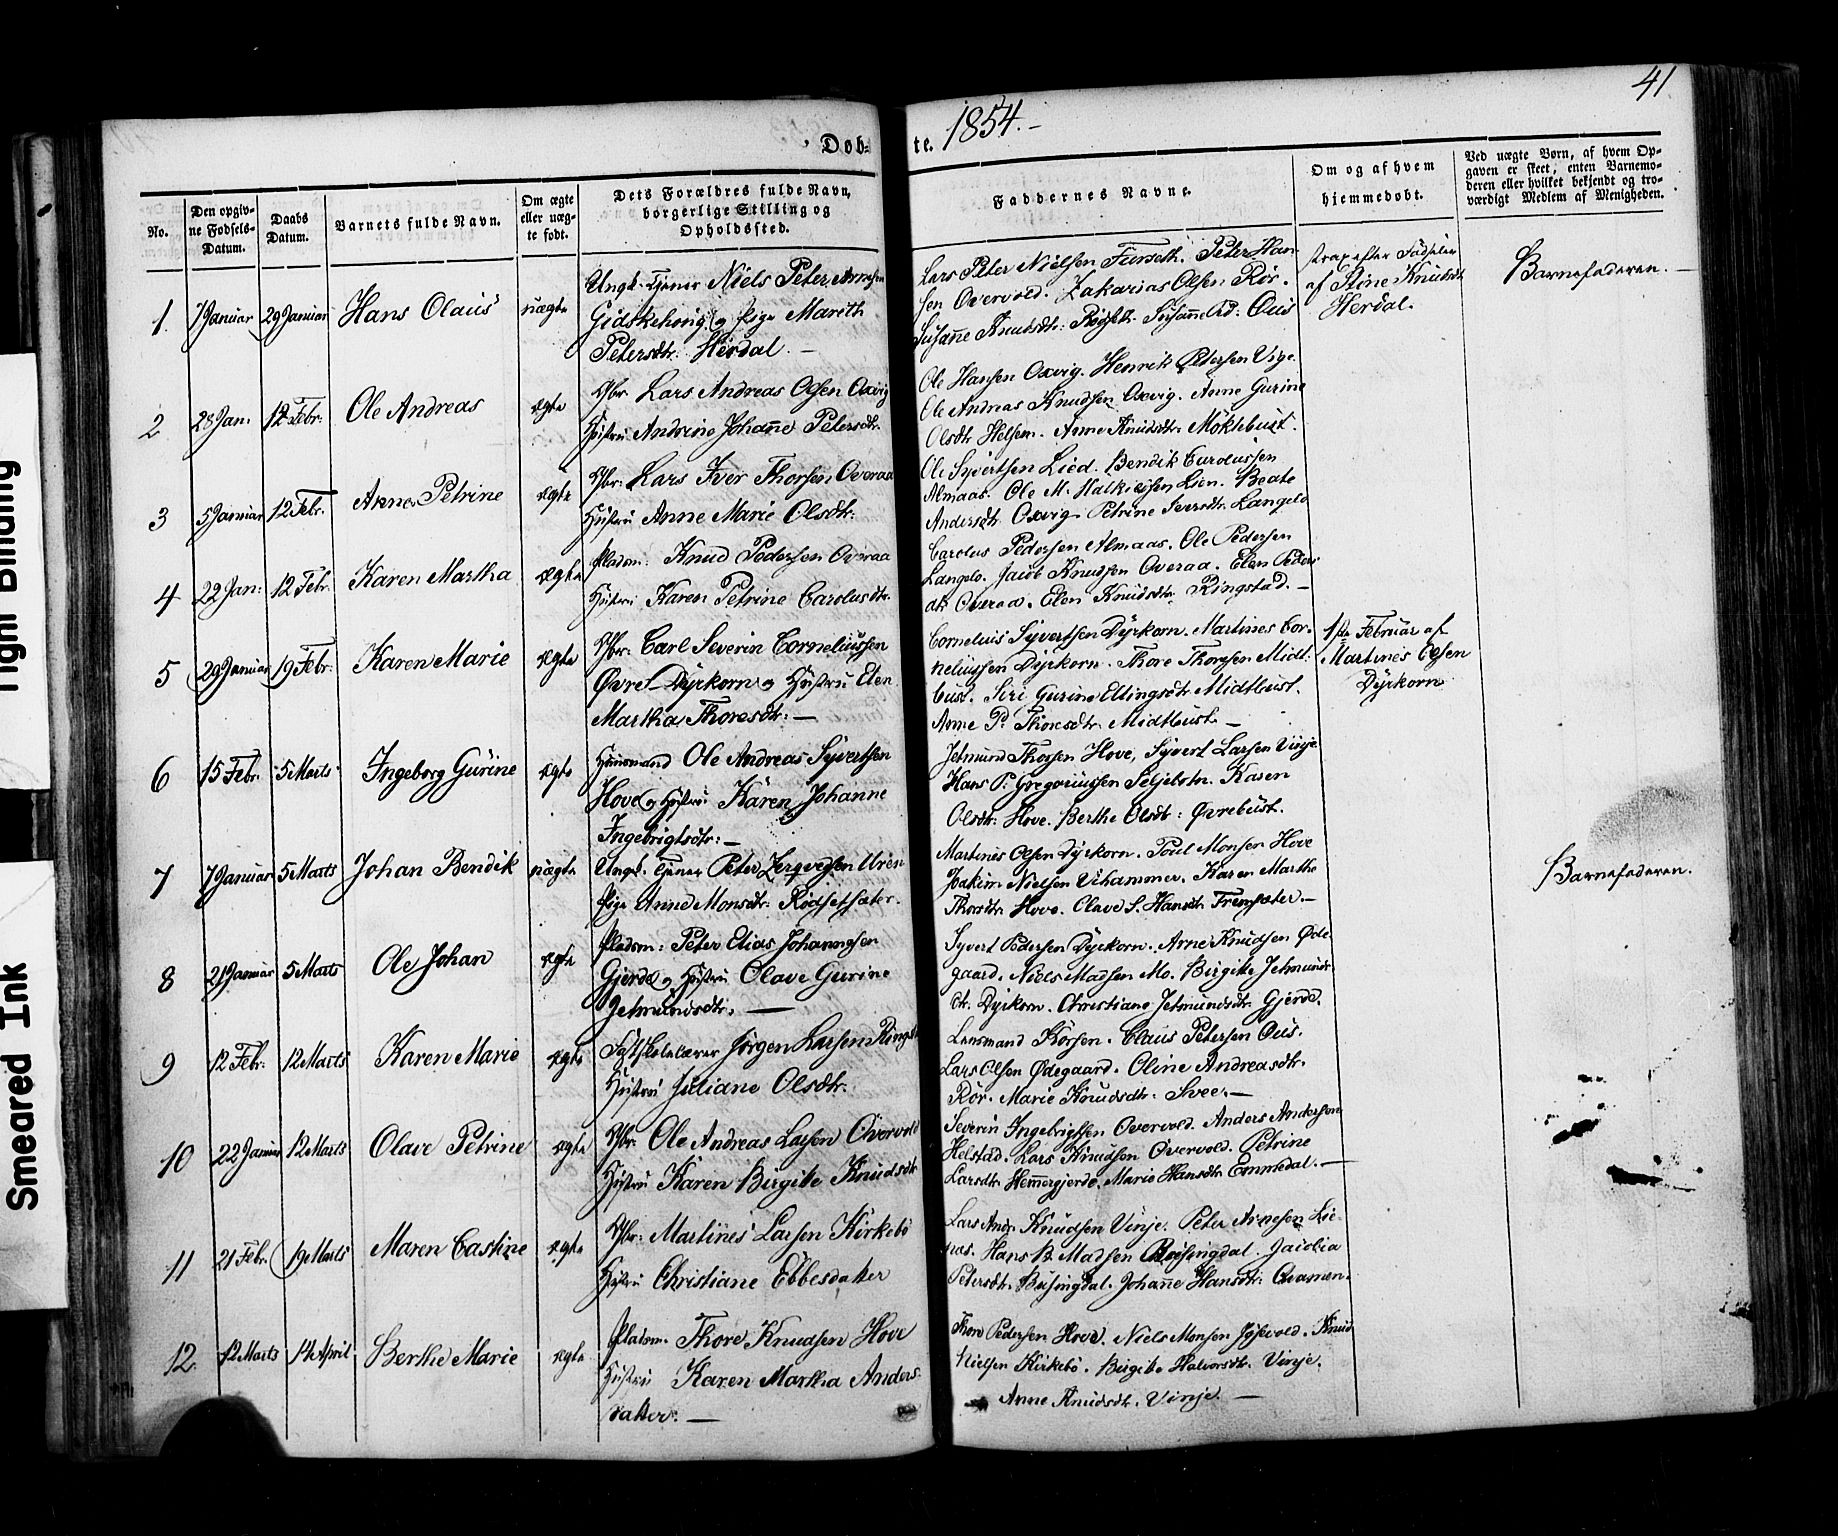 41
Døb-te. 1854.-
No.
Den opgiv-
ne Fødsels-
Datum.
Daabs
Datum.
Barnets fulde Navn.
Om ægte
eller uæg-
te født.
Dets Forældres fulde Navn,
borgerlige Stilling og
Opholdssted.
Faddernes Navne.
Om og af hvem
hjemmedøbt.
Ved uægte Børn, af hvem Op-
gaven er skeet, enten Barnemo-
deren eller hvilket bekjendt og tro-
værdigt Medlem af Menigheden.
1. 7 Januar 29 Januar Hans Olaus uægte
Ungk. Tjener Niels Peter Arnesen
Gidskehoug og Pige Marith
Petersdtr. Herdal. —
Lars Peter Nielsen Furseth. Peter Han-
sen Overvold. Zakarias Olsen Rør.
Susanne Knudsdtr. Susanne Ous
strax efter Fødselen
af Stine Knudsdt
Herdal.
Barnefaderen. —
2 28 Jan. 12 Febr. Ole Andreas ægte
Gbr. Lars Andreas Olsen Oxvig
Hustru Andrine Johanne Petersdtr.
Ole Hansen Oxvig. Henrik Petersen
Ole Andreas Knudsen Oxvig. Anne Gurine
Olsdtr Helsem. Anne Knudsdtr. Möklebust.
3 5 Januar 12 Febr. Anne Petrine ægte
Gbr: Lars Iver Thorsen Overaa
Hustru Anne Marie Olsdtr.
Ole Syvertsen Lied. Bendik Carolussen
Almaas. Ole M. Lien. Beate
Andersdtr Oxvig. Petrine Iversdtr. Langelo
4 22 Jan: 12 Febr. Karen Martha ægte
Pladsm: Knud Pedersen Overaa
Hustru Karen Petrine Carolusdtr.
Carolus Pedersen Almaas. Ole Pedersen
Langelo. Jacob Knudsen Overaa. Elen Peders
dtr Overaa. Elen Knudsdtr. Ringstad. —
5 29 Januar 19 Febr. Karen Marie ægte
Gbr. Carl Severin Corneliussen
Øvre Dyrkorn og Hustru Elen
Martha Thoresdtr: —
Cornelius Syvertsen Dyrkorn. Martines Cor-
neliussen Dyrkorn. Thore Thoresen Midt-
bust. Siri Gurine Ellingsdtr Midtbust.
Anne P. Thoresdtr. Midtbust. —
1ste Februar af
Martines Olsen
Dyrkorn
6 15 Febr. 5 Marts Ingeborg Gurine ægte
Huusmand Ole Andreas Syvertsen
Hove og Hustru Karen Johanne
Ingebrigtsdtr: —
Jetmund Thorsen Hove, Syvert Larsen Vinje
Hans P. Gregoriussen Karen
Olsdtr. Hove. Berthe Olsdtr: Øvrebust.
7 7 Januar 5 Marts Johan Bendik uægte
Ungk. Tjener Peter Uren
Pige Anne Monsdtr. Rødsetsæter.
Martines Olsen Dyrkorn. Poul Monsen Hove
Joakim Nielsen Uhammer. Karen Marthe
Thorsdtr. Hove. Olave S. Hansdtr Fremsæter. —
Barnefaderen.
8 21 Januar 5 Marts Ole Johan ægte
Pladsm: Peter Elias Johannesen
Gjerde og Hustru Olave Gurine
Jetmundsdtr. —
Syvert Pedersen Dyrkorn. Arne Knudsen Øde-
gaard. Niels Madsen Mo. Birgitte Jetmunds-
dtr. Dyrkorn. Christiane Jetmundsdtr. Gjerde.
9 12 Febr. 12 Marts Karen Marie ægte
Jørgen Larsen Ringst
Hustru Juliane Olsdtr.
Lensmand Korsen. Claus Petersen Ous.
Lars Olsen Ødegaard. Oline Andreasdtr.
Rör. Marie Knudsdtr. Svee. —
10 22 Januar 12 Marts Olave Petrine ægte
Gbr. Ole Andreas Larsen Overvold
Hustru Karen Birgitte Knudsdtr
Severin Ingebrigtsen Overvold. Anders Andersen
Helstad. Lars Knudsen Overvold. Petrine
Larsdtr. Hemmergjerde. Marie Hansdtr Emmedal. —
11 21 Febr. 19 Marts Maren Castine ægte
Gbr: Martines Larsen Kirkebö
Hustru Christiane Ebbesdatter
Lars Andr. Knudsen Vinje. Peter Arnesen Lie-
næs. Hans B. Madsen Brusingdal. Jacobia
Petersdtr. Brusingdal. Johanne Hansdtr: Qvamen.
12. 12 Marts 14 April Berthe Marie ægte
Pladsm. Thore Knudsen Hove
Hustru Karen Martha Anders-
datter. —
Thore Pedersen Hove. Niels Monsen Knud
Nielsen Kirkebö. Birgitte Halvorsdtr. Vinje.
Anne Knudsdtr. Vinje. —
Tight Binding
Smeared Ink